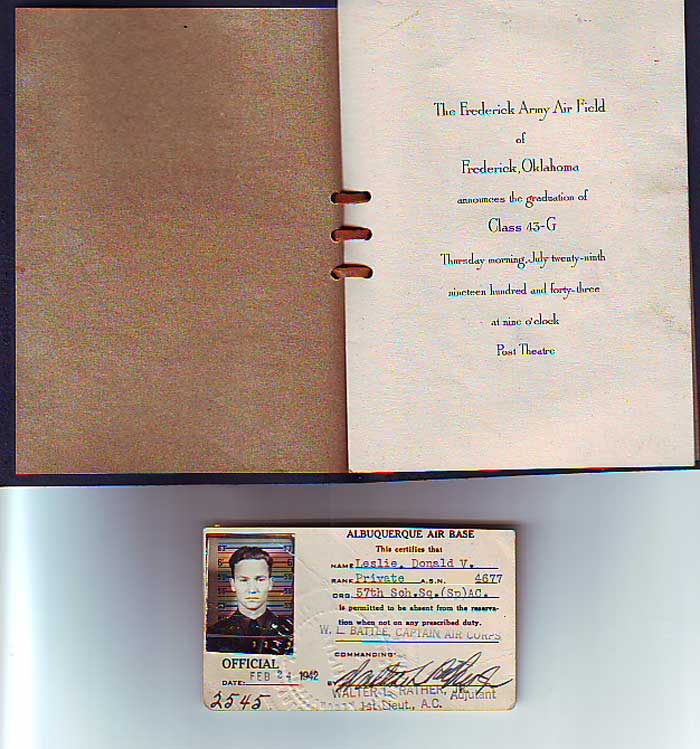 The Frederick Army Air Field
of
Frederick, Oklahoma
announces the graduation of
Class 43-G
Thursday morning, July twenty-ninth
nineteen hundred and forty-three
at nine o'clock
Post Theatre
ALBUQUERQUE AIR BASE
This certifies that
NAME Leslie, Donald V.
RANK Private A.S.N. 4677
ORG 57th Sch.Sq.(Sp)AC.
is permitted to be absent from the reserva-
tion when not on any prescribed duty.
W. L. BATTLE, CAPTAIN AIR CORPS
COMMANDING
OFFICIAL
DATE: FEB 24 1942
BY
WALTER L. RATHER, JR. Adjutant
1st Lieut., A.C.
2545